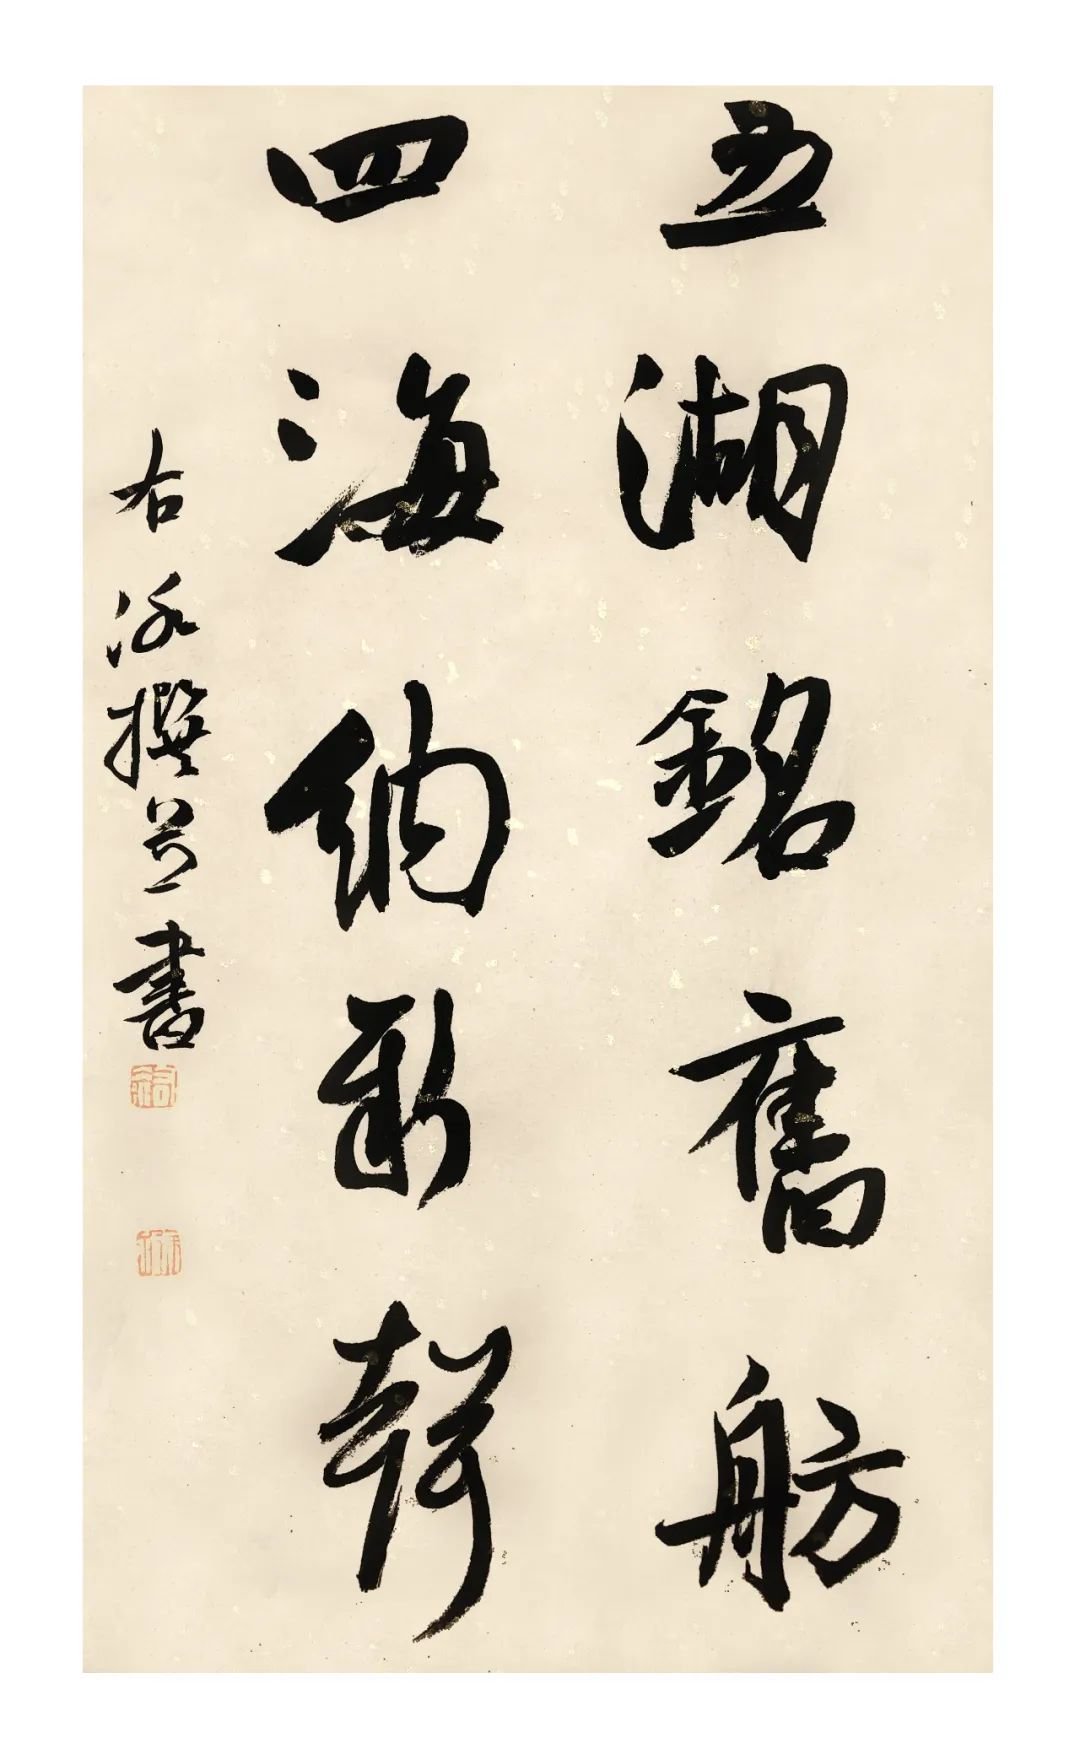 五湖銘舊舫
四海納新聲
右泳撰並書